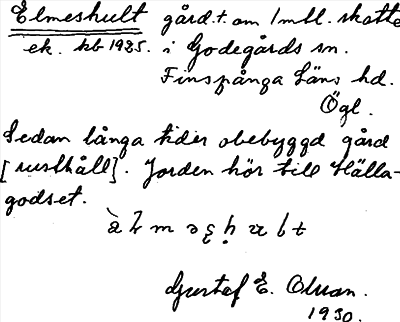 Elmeshult gård. t. om 1 mtl. skatte
ek. kb 1925. i Godegårds sn.
Finspånga Läns hd.
Ögl.
Sedan långa tider obebyggd gård
[rusthåll]. Jorden hör till Hälla-
godset.
Gustaf E. Olsson.
1930.